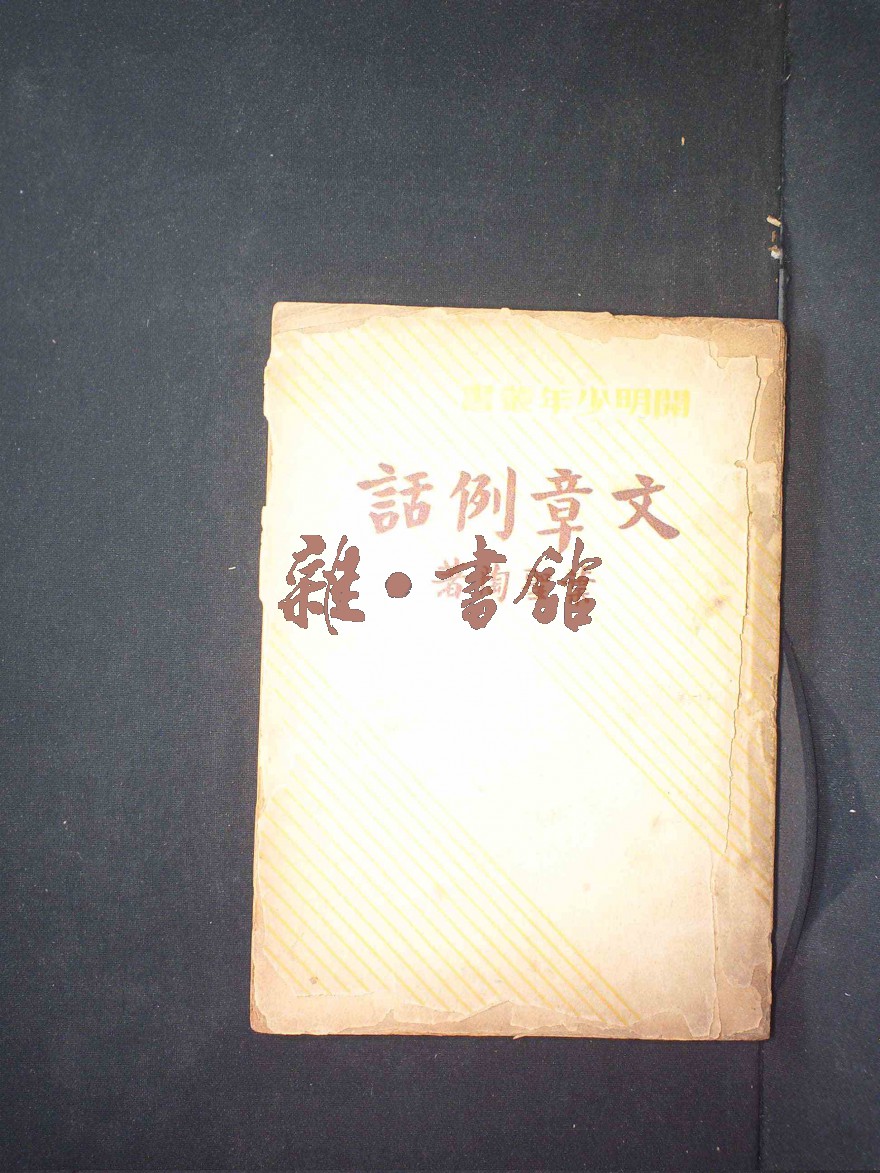 開明少年叢書
文章例話
陶著
雜·書館